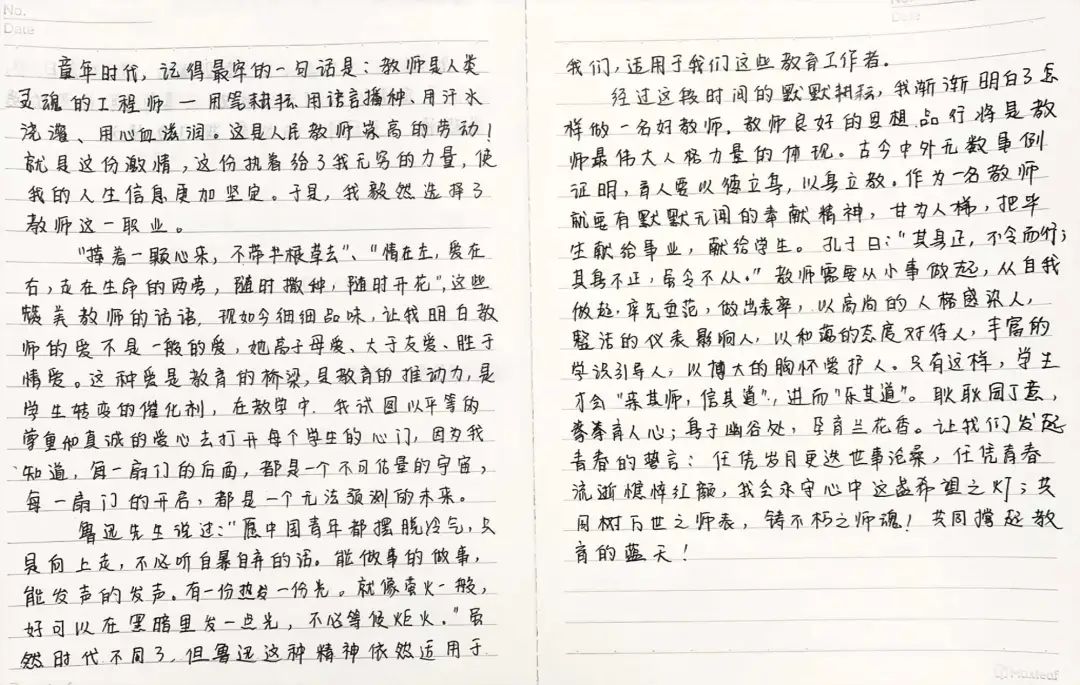 No.
Date
童年时代，记得最牢的一句话是：教师是人类
灵魂的工程师 — 用笔耕耘、用语言播种、用汗水
浇灌、用心血滋润。这是人民教师崇高的劳动！
就是这份激情，这份执着给了我无穷的力量，使
我的人生信息更加坚定。于是，我毅然选择了
教师这一职业。
"捧着一颗心来，不带半根草去"、"情在左，爱在
右，走在生命的两旁，随时撒种，随时开花"，这些
精美教师的话语，现如今细细品味，让我明白教
师的爱不是一般的爱，她高于母爱、大于友爱、胜于
情爱。这种爱是教育的桥梁，是教育的推动力，是
学生转变的催化剂，在教学中，我试图以平等的
尊重和真诚的爱心去打开每个学生的心门，因为我
知道，每一扇门的后面，都是一个不可估量的宇宙，
每一扇门的开启，都是一个无法预测的未来。
鲁迅先生说过："愿中国青年都摆脱冷气，只
是向上走，不必听自暴自弃的话。能做事的做事，
能发声的发声。有一份热发一份光。就像萤火一般，
好可以在黑暗里发一点光，不必等候炬火。"虽
然时代不同了，但鲁迅这种精神依然适用于
Date
我们，适用于我们这些教育工作者。
经过这段时间的默默耕耘，我渐渐明白了怎
样做一名好教师，教师良好的思想、品行将是教
师最伟大人格力量的体现。古今中外无数事例
证明，育人要以德立身，以身立教。作为一名教师
就要有默默无闻的奉献精神，甘为人梯，把毕
生献给事业，献给学生。孔子曰："其身正，不令而行；
其身不正，虽令不从。"教师需要从小事做起，从自我
做起，率先垂范，做出表率，以高尚的人格感染人，
整洁的仪表影响人，以和蔼的态度对待人，丰富的
学识引导人，以博大的胸怀爱护人。只有这样，学生
才会"亲其师，信其道"，进而"乐其道"。耿耿园丁意，
拳拳育人心；身于幽谷处，孕育兰花香。让我们发起
青春的誓言：任凭岁月更迭世事沧桑，任凭青春
流逝憔悴红颜，我会永守心中这盏希望之灯；共
同树万世之师表，铸不朽之师魂！共同撑起教
育的蓝天！